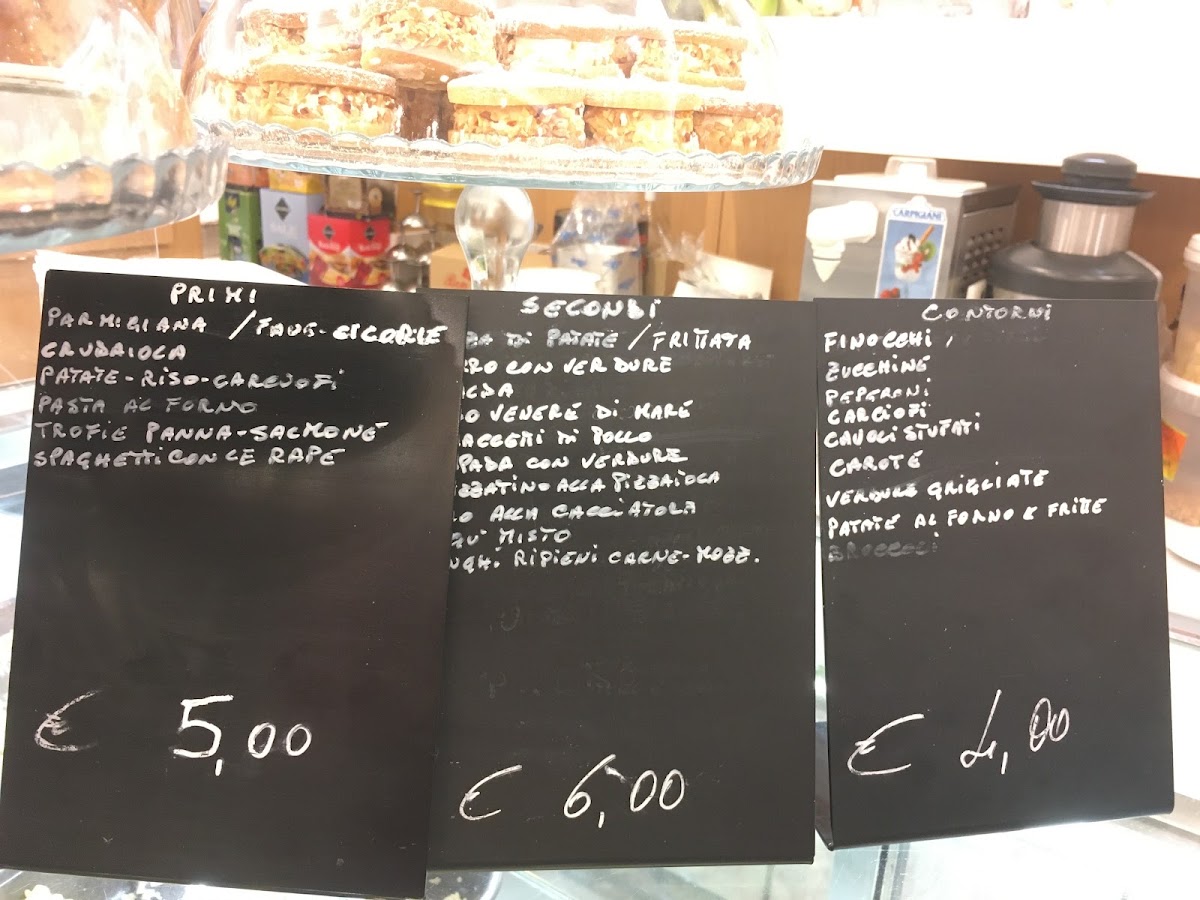 CARPIGIANI
PRIMI
PARMIGIANA / FAVE-CICORIE
CRUDAIOLA
PATATE-RISO-CARCIOFI
PASTA AL FORNO
TROFIE PANNA-SALMONE
SPAGHETTI CON LE RAPE
€ 5,00
SECONDI
DI PATATE / FRITTATA
CON VERDURE
VENERE DI MARE
DI POLLO
PADA CON VERDURE
ALLA PIZZAIOLA
ALLA CACCIATORA
MISTO
NGHI RIPIENI CARNE-MOZZ.
€ 6,00
CONTORNI
FINOCCHI
ZUCCHINE
PEPERONI
CARCIOFI
CAVOLI STUFATI
CAROTE
VERDURE GRIGLIATE
PATATE AL FORNO E FRITTE
BROCCOLI
€ 4,00